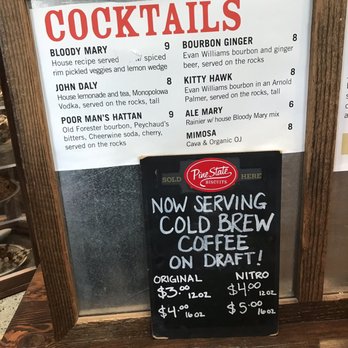 COCKTAILS
BLOODY MARY 9
House recipe served spiced
rim pickled veggies and lemon wedge
JOHN DALY 8
House lemonade and tea, Monopolowa
Vodka, served on the rocks, tall
POOR MAN'S HATTAN 9
Old Forester bourbon, Peychaud's
bitters, Cheerwine soda, cherry,
served on the rocks
BOURBON GINGER 8
Evan Williams bourbon and ginger
beer, served on the rocks
KITTY HAWK 8
Evan Williams bourbon in an Arnold
Palmer, served on the rocks, tall
ALE MARY 6
Rainier w/ house Bloody Mary mix
MIMOSA 8
Cava & Organic OJ
SOLD Pine State HERE
BISCUITS
NOW SERVING
COLD BREW
COFFEE
ON DRAFT!
ORIGINAL
$3.00 12oz
$4.00 16oz
NITRO
$4.00 12oz
$5.00 16oz